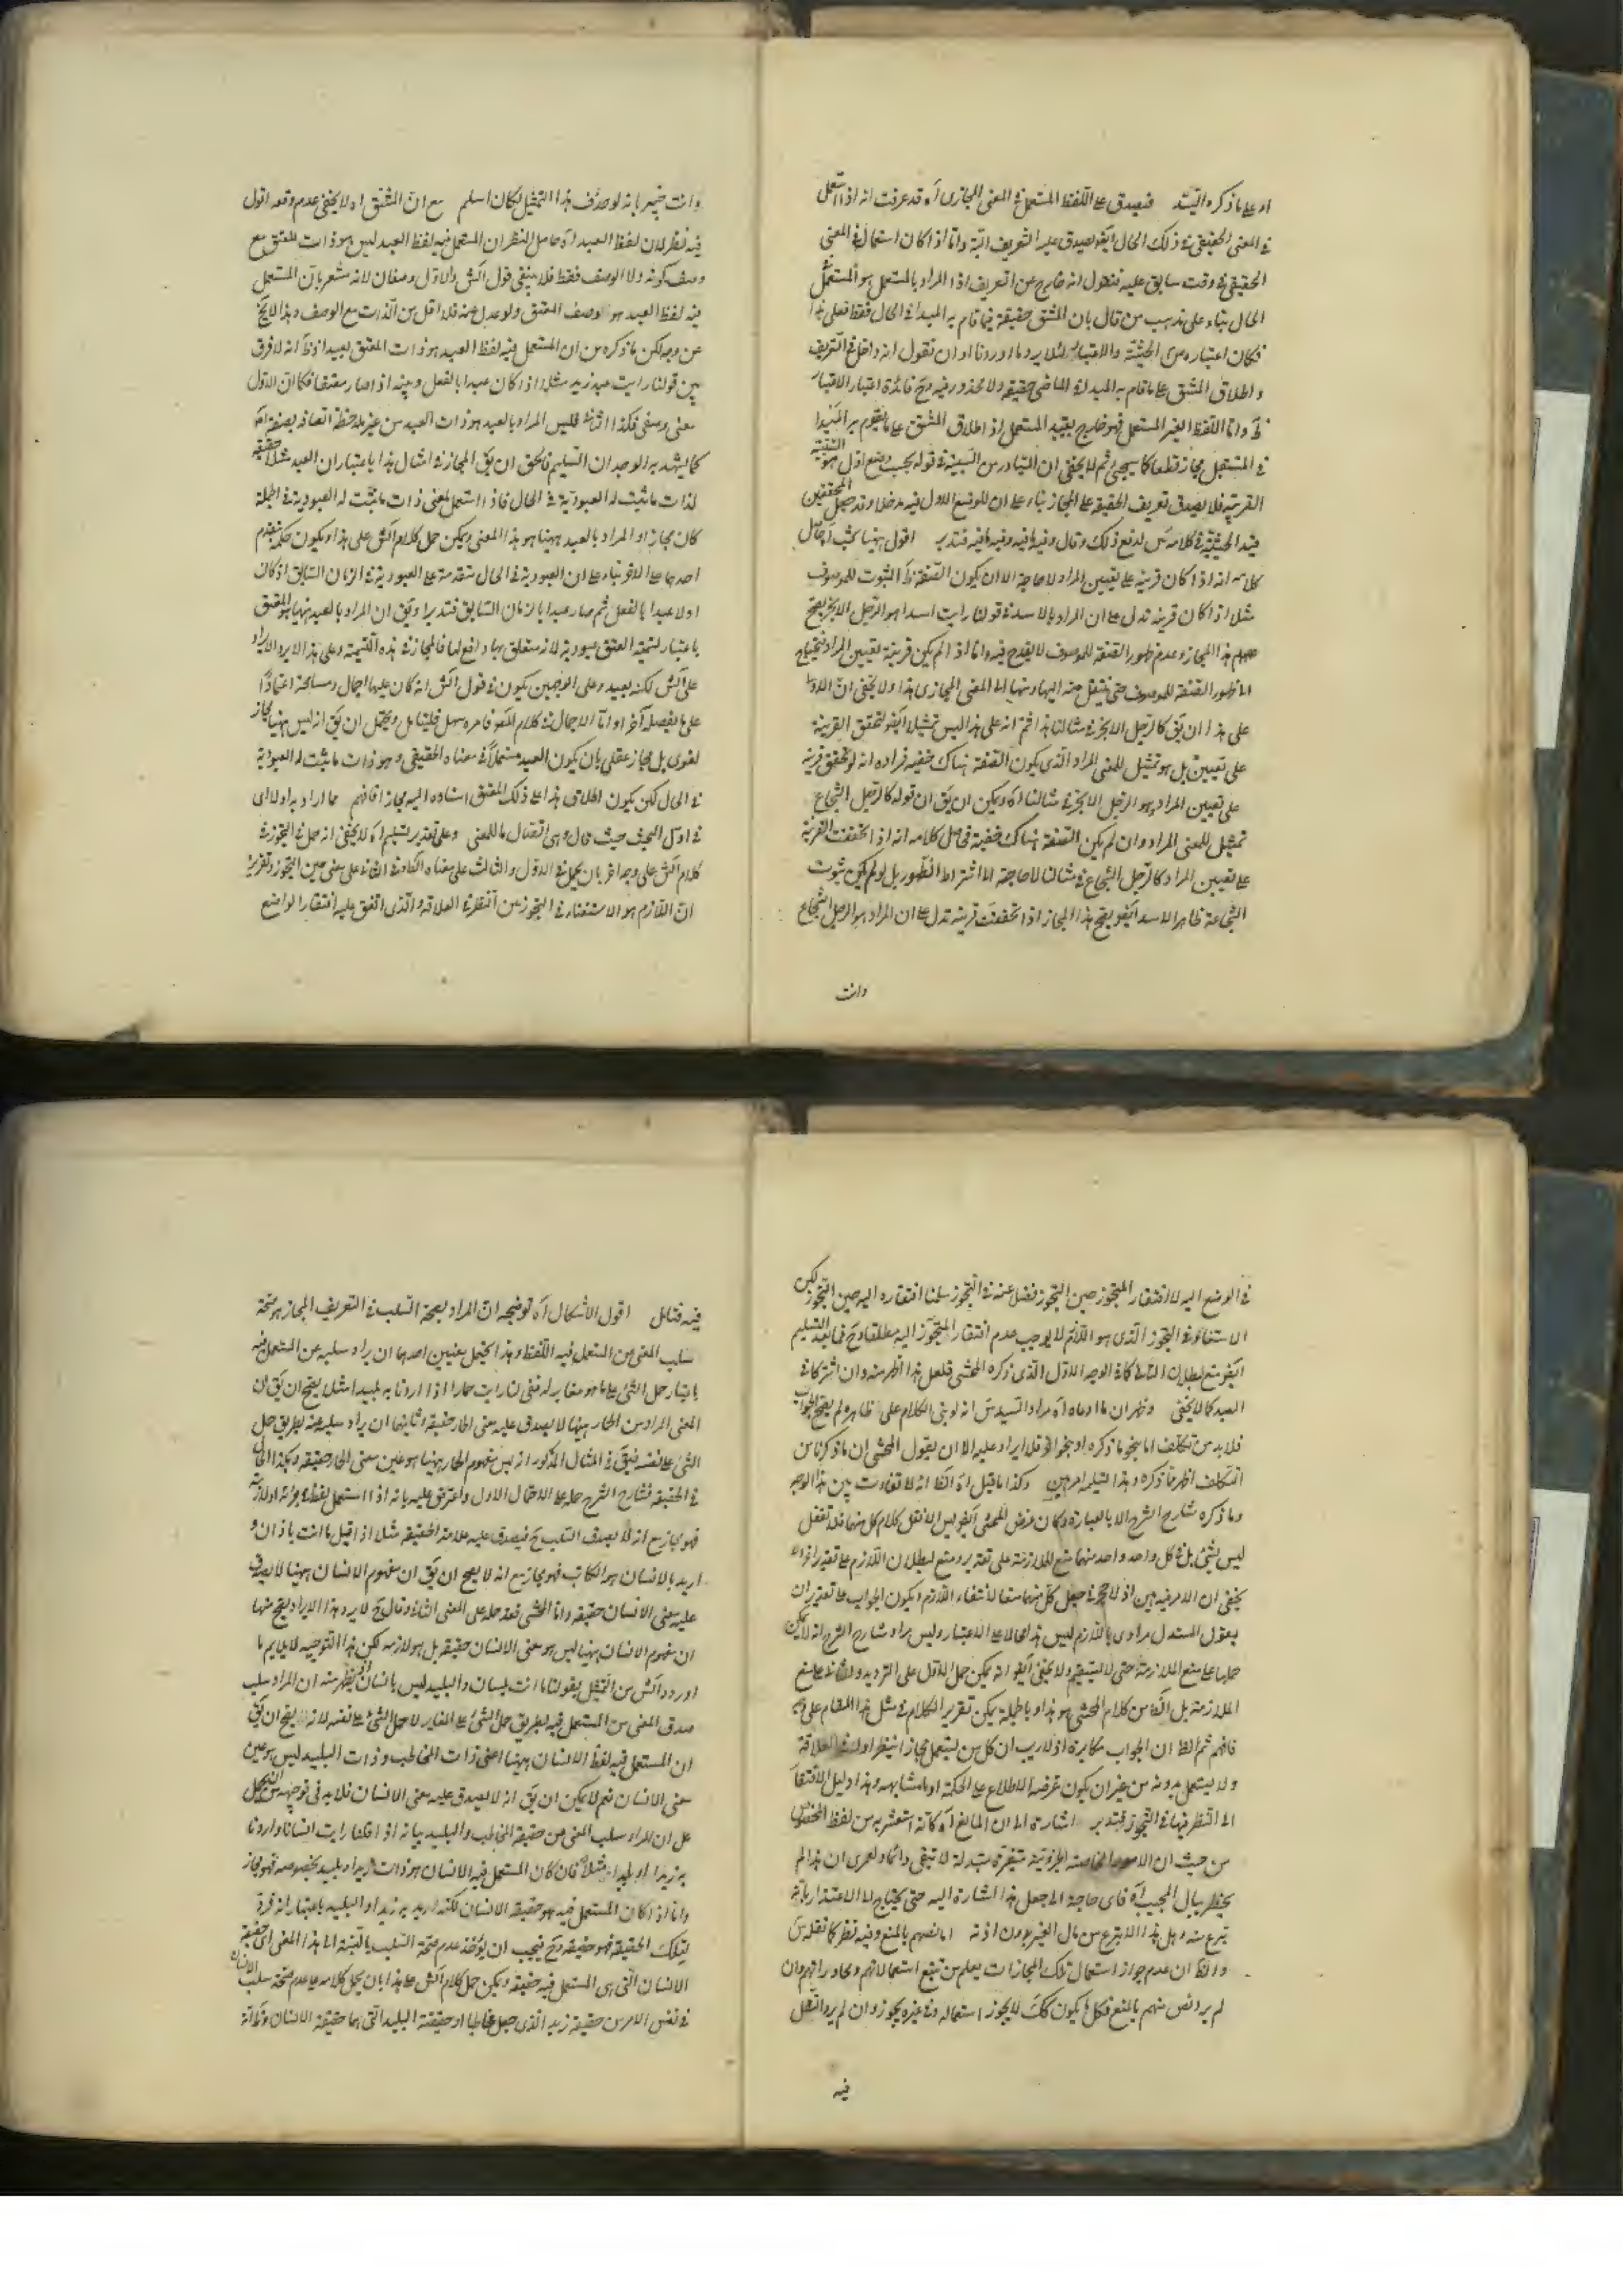 او على ما ذكره السيد فيصدق على اللفظ المستعمل في المعنى المجازى آه قد عرفت انه اذا استعمل
في المعنى الحقيقى في ذلك الحال ايضو يصدق عليه التعريف البتة واما اذا كان استعماله في المعنى
الحقيقى في وقت سابق عليه فنقول انه خارج عن التعريف اذا المراد بالمستعمل هو المستعمل
الحال بناء على مذهب من قال بان المشتق حقيقة فيما قام به المبدا في الحال فقط فعلى هذا
فكان اعتباره من الحيثية والاعتبار لئلا يرد ما اوردنا او ان نقول انه داخل في التعريف
واطلاق المشتق على ما قام به المبدا في الماضى حقيقة ولا محذور فيه وح فائدة اعتبار
واما اللفظ الغير المستعمل فهو خارج بقيد المستعمل اذ اطلاق المشتق على ما يقوم به المبدا
في المستقبل مجاز قطعا كما سيجئ ثم لا يخفى ان المتبادر من السببية في قوله بحسب وضع اول هو
القريبة فلا يصدق تعريف الحقيقة على المجاز بناء على ان للوضع الاول فيه مدخلا وقد جعل
قيد الحيثية في كلامه لدفع ذلك وقال وفيه ما فيه فتدبر اقول ههنا بحث
كلامه انه اذا كان قرينة على تعيين المراد لا حاجة الى ان يكون الصفة ظ الثبوت للموصوف
مثلا اذا كان قرينة تدل على ان المراد بالاسد في قولنا رايت اسدا هو الرجل الابخر يصح
هذا المجاز وعدم ظهور الصفة للموصوف لا يقدح فيه واما اذا لم يكن قرينة تعيين المراد فيحتاج
الى ظهور الصفة للموصوف حتى ينتقل منه اليها ومنها الى المعنى المجازى هذا ولا يخفى ان
على هذا ان يق كالرجل الابخر في مثالنا هذا ثم انه على هذا ليس تمثيلا ايضو لتحقق القرينة
على تعيين بل هو تمثيل للمعنى المراد الذى يكون الصفة هناك خفية فمراده انه لو تحقق قرينة
على تعيين المراد وهو الرجل الابخر في مثالنا آه ويمكن ان يق ان قوله كالرجل الشجاع
تمثيل للمعنى المراد وان لم يكن الصفة هناك خفية فحاصل كلامه انه اذا تحققت القرينة
على تعيين المراد كالرجل الشجاع في مثالنا لا حاجة الى اشتراط الظهور بل لو لم يكن ثبوت
الشجاعة ظاهرا للاسد ايضو يصح هذا المجاز اذا تحققت قرينة تدل على ان المراد هو الرجل الشجاع
وانت
وانت خبير بانه لو حذف هذا التمثيل لكان اسلم مع ان المشتق اه لا يخفى عدم وقعه اقول
فيه نظر لان لفظ العبد آه حاصل النظر ان المستعمل فيه لفظ العبد ليس هو ذات المعتق مع
وصف كونه ولا الوصف فقط فلا ينبغى قول الش والاول وصفان لانه مشعر بان المستعمل
فيه لفظ العبد هو الوصف المعتق ولو عدل عنه فلا اقل من الذات مع الوصف وهذا لا يخ
عن وجه لكن ما ذكره من ان المستعمل فيه لفظ العبد هو ذات المعتق بعيد اذ ظ انه لا فرق
بين قولنا رايت عبد زيد مثلا اذا كان عبدا بالفعل وبينه اذا صار معتقا فكما ان الاول
معنى وصفى فكذا الثانى فليس المراد بالعبد هو ذات العبد من غير ملاحظة اتصافه بصفة
كما يشهد به الوجدان السليم فالحق ان يق المجاز في امثال هذا باعتبار ان العبد مثلا حقيقة
لذات ما ثبت له العبودية في الحال فاذا استعمل لمعنى ذات ما ثبت له العبودية في الجملة
كان مجازا والمراد بالعبد ههنا هو هذا المعنى ويمكن حمل كلام الش على هذا ويكون حكمه بتقدم
احدهما على الاخر بناء على ان العبودية في الحال متقدمة على العبودية في الزمان السابق اذ كان
اولا عبدا بالفعل ثم صار عبدا بالزمان السابق فتدبر او يق ان المراد بالعبد ههنا هو المعتق
باعتبار تسمية العتق عبودية لانه متعلق بها ورافع لها فالمجاز في هذه التسمية وعلى هذا لا يرد الايراد
على الش لكنه بعيد وعلى الوجهين يكون في قول الش انه كان عليها اجمال ومسامحة اعتمادا
على ما يفصله آخرا واما الاجمال في كلام المصو فامره سهل فليتأمل ويحتمل ان يق انه ليس ههنا مجاز
لغوى بل مجاز عقلى بان يكون العبد مستعملا في معناه الحقيقى وهو ذات ما يثبت له العبودية
في الحال لكن يكون اطلاق هذا على ذلك المعتق اسناده اليه مجازا فافهم مما اراد به اولا اى
في اول البحث حيث قال وهى اتصال ما للمعنى وعلى تقدير تسليم آه لا يخفى انه حمل في التجوز في
كلام الش على وجه آخر بان يحمل في الاول والثالث على معناه الكائن في الثانى على معنى حين التجوز وتقريره
ان اللازم هو الاستغناء في التجوز عن النظر في العلاقة والذى اتفق عليه افتقار الواضع
في الوضع اليه لا افتقار المتجوز حين التجوز فضل عنه في التجوز سلمنا افتقاره اليه حين التجوز لكن
الاستغناء في التجوز الذى هو اللازم لا يوجب عدم افتقار المتجوز اليه مطلقا وح فما بعد التسليم
ايضو منع لبطلان التالى كما في الوجه الاول الذى ذكره المحشى فلعل هذا اظهر منه وان اشتركا في
البعد كما لا يخفى وظهر ان ما ادعاه آه مراد السيد س انه لو بنى الكلام على ظاهره لم يصح الجواب
فلا بد من تكلف اما بنحو ما ذكره او بنحو آخر فلا ايراد عليه الا ان يقول المحشى ان ما ذكرنا من
التكلف اظهر مما ذكره وهذا وكذا ما قيل آه الظ انه لا تفاوت بين هذا الوجه
وما ذكره شارح الشرح الا بالعبارة وكان غرض المحشى ايضو ليس الا نقل كلام كل منهما فلا تغفل
ليس بشئ بل في كل واحد واحد منهما منع للملازمة على تقدير ومنع لبطلان اللازم على تقدير آخر ولا
يخفى ان الامر فيه هين اذ لا حجر في جعل كل منهما منعا لانتفاء اللازم ويكون الجواب على تقدير ان
يقول المستدل مرادى باللازم ليس هذا محالا على الاعتبار وليس مراد شارح الشرح انه لا يمكن
حملها على منع الملازمة حتى لا يستقيم ولا يخفى ايضو انه يمكن حمل الاول على الترديد والثانى على منع
الملازمة بل الظ من كلام المحشى هو هذا وبالجملة يمكن تقرير الكلام في مثل هذا المقام على
فافهم ثم الظ ان الجواب مكابرة اذ لا ريب ان كل من يستعمل مجازا ينظر اولا في العلاقة
ولا يستعمل بدونه من غير ان يكون غرضه الاطلاع على الحكمة او ما شابهه وهذا دليل الافتقار
الى النظر فيها في التجوز فتدبر اشارة الى ان المانع آه كانه استشعر به من لفظ الخصوص
من حيث ان الامور الخاصة الجزئية متغيرة متبدلة لا تبقى دائما ولعمرى ان هذا لم
يخطر ببال المجيب آه فاى حاجة الى جعل هذا اشارة اليه حتى يحتاج الى الاعتذار بانه
تبرع منه وهل هذا الا تبرع من مال الغير بدون اذنه اما نصهم بالمنع وفيه نظر كما نقل س
والظ ان عدم جواز استعمال تلك المجازات يعلم من تتبع استعمالاتهم ومحاوراتهم وان
لم يرد نص منهم بالمنع فكل ما يكون كك لا يجوز استعماله وفى غيره يجوز وان لم يرد النقل
فيه
فيه فتامل اقول الاشكال آه توضيحه ان المراد بصحة السلب في التعريف المجاز هو صحة
سلب المعنى من المستعمل فيه اللفظ وهذا يحتمل معنيين احدهما ان يراد سلبه عن المستعمل فيه
باعتبار حمل الشئ على ما هو مغاير له فنى انا رايت حمارا اذا اردنا به بليدا مثلا يصح ان يق ان
المعنى المراد من الحمار ههنا لا يصدق عليه معنى الحمار حقيقة وثانيهما ان يراد سلبه عنه بطريق حمل
الشئ على نفسه فيق في المثال المذكور انه ليس مفهوم الحمار ههنا هو عين معنى الحمار حقيقة وهكذا الحال
في الحقيقة فشارح الشرح حمله على الاحتمال الاول واعترض عليه بانه اذا استعمل لفظ في جزئه او لازمه
فهو مجاز مع انه لا يصدق السلب ح فيصدق عليه علامة الحقيقة مثلا اذا قيل ما انت باذان و
اريد بالانسان هو الكاتب فهو مجاز مع انه لا يصح ان يق ان مفهوم الانسان ههنا لا يصدق
عليه معنى الانسان حقيقة واما المحشى فقد حمله على المعنى الثانى وقال ح لا يرد هذا الايراد يصح منها
ان مفهوم الانسان ههنا ليس هو معنى الانسان حقيقة بل هو لازمه لكن هذا التوجيه لا يلايم ما
اورده الش من التمثيل بقولنا ما انت بانسان والبليد ليس بانسان اذ يظهر منه ان المراد سلب
صدق المعنى من المستعمل فيه بطريق حمل الشئ على المغاير لا حمل الشئ على نفسه لانه لا يصح ان يق
ان المستعمل فيه لفظ الانسان ههنا اعنى ذات المخاطب وذات البليد ليس هو عين
معنى الانسان نعم لا يمكن ان يق انه لا يصدق عليه معنى الانسان فلا بد في توجيهه من التمحل
على ان المراد سلب المعنى من حقيقة المخاطب والبليد بيانه اذا قلنا رايت انسانا واردنا
به زيدا او بليدا مثلا فان كان المستعمل فيه الانسان هو ذات زيد او بليد بخصوصه فهو مجاز
واما اذا كان المستعمل فيه هو حقيقة الانسان لكنه اريد به زيد او البليد باعتبار انه فرد
لتلك الحقيقة فهو حقيقة وح فيجب ان يؤخذ عدم صحة السلب بالنسبة الى هذا المعنى اى حقيقة
الانسان التى هى المستعمل فيه حقيقة ويمكن حمل كلام الش على هذا بان يحمل كلامه على عدم صحة سلب الانسان
في نفس الامر من حقيقة زيد الذى جعل مخاطبا او حقيقة البليد التى هما حقيقة الانسان وكانه